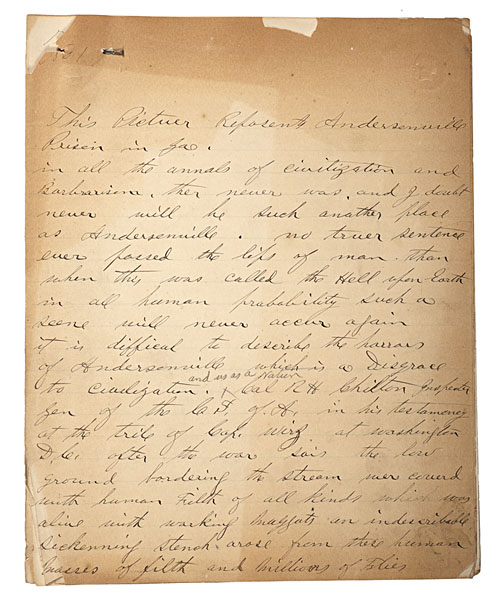 This Pictuer Reposents Andersonville
Prison in Ga.
in all the annals of civilization and
Barbarism. ther never was. and I doubt
never will be such another place
as Andersonville. no truer sentence
ever passed the lips of man. than
when this was called the Hell upon Earth
in all human probability such a
scene will never accur again
it is diffical to describe the horrors
of Andersonville which is a Disgrace
and us as a Nation
to civilization. Col R H Chilton Inspecter
Gen of the C.S. of A. in his testamoney
at the trile of Cap. Wirz at Washington
D.C. after the war sais the low
ground bordering th stream wer coverd
with human Filth of all kinds which was
alive with working maggots an indescribable
Sickenning stench arose from these human
masses of filth and millions of Flies